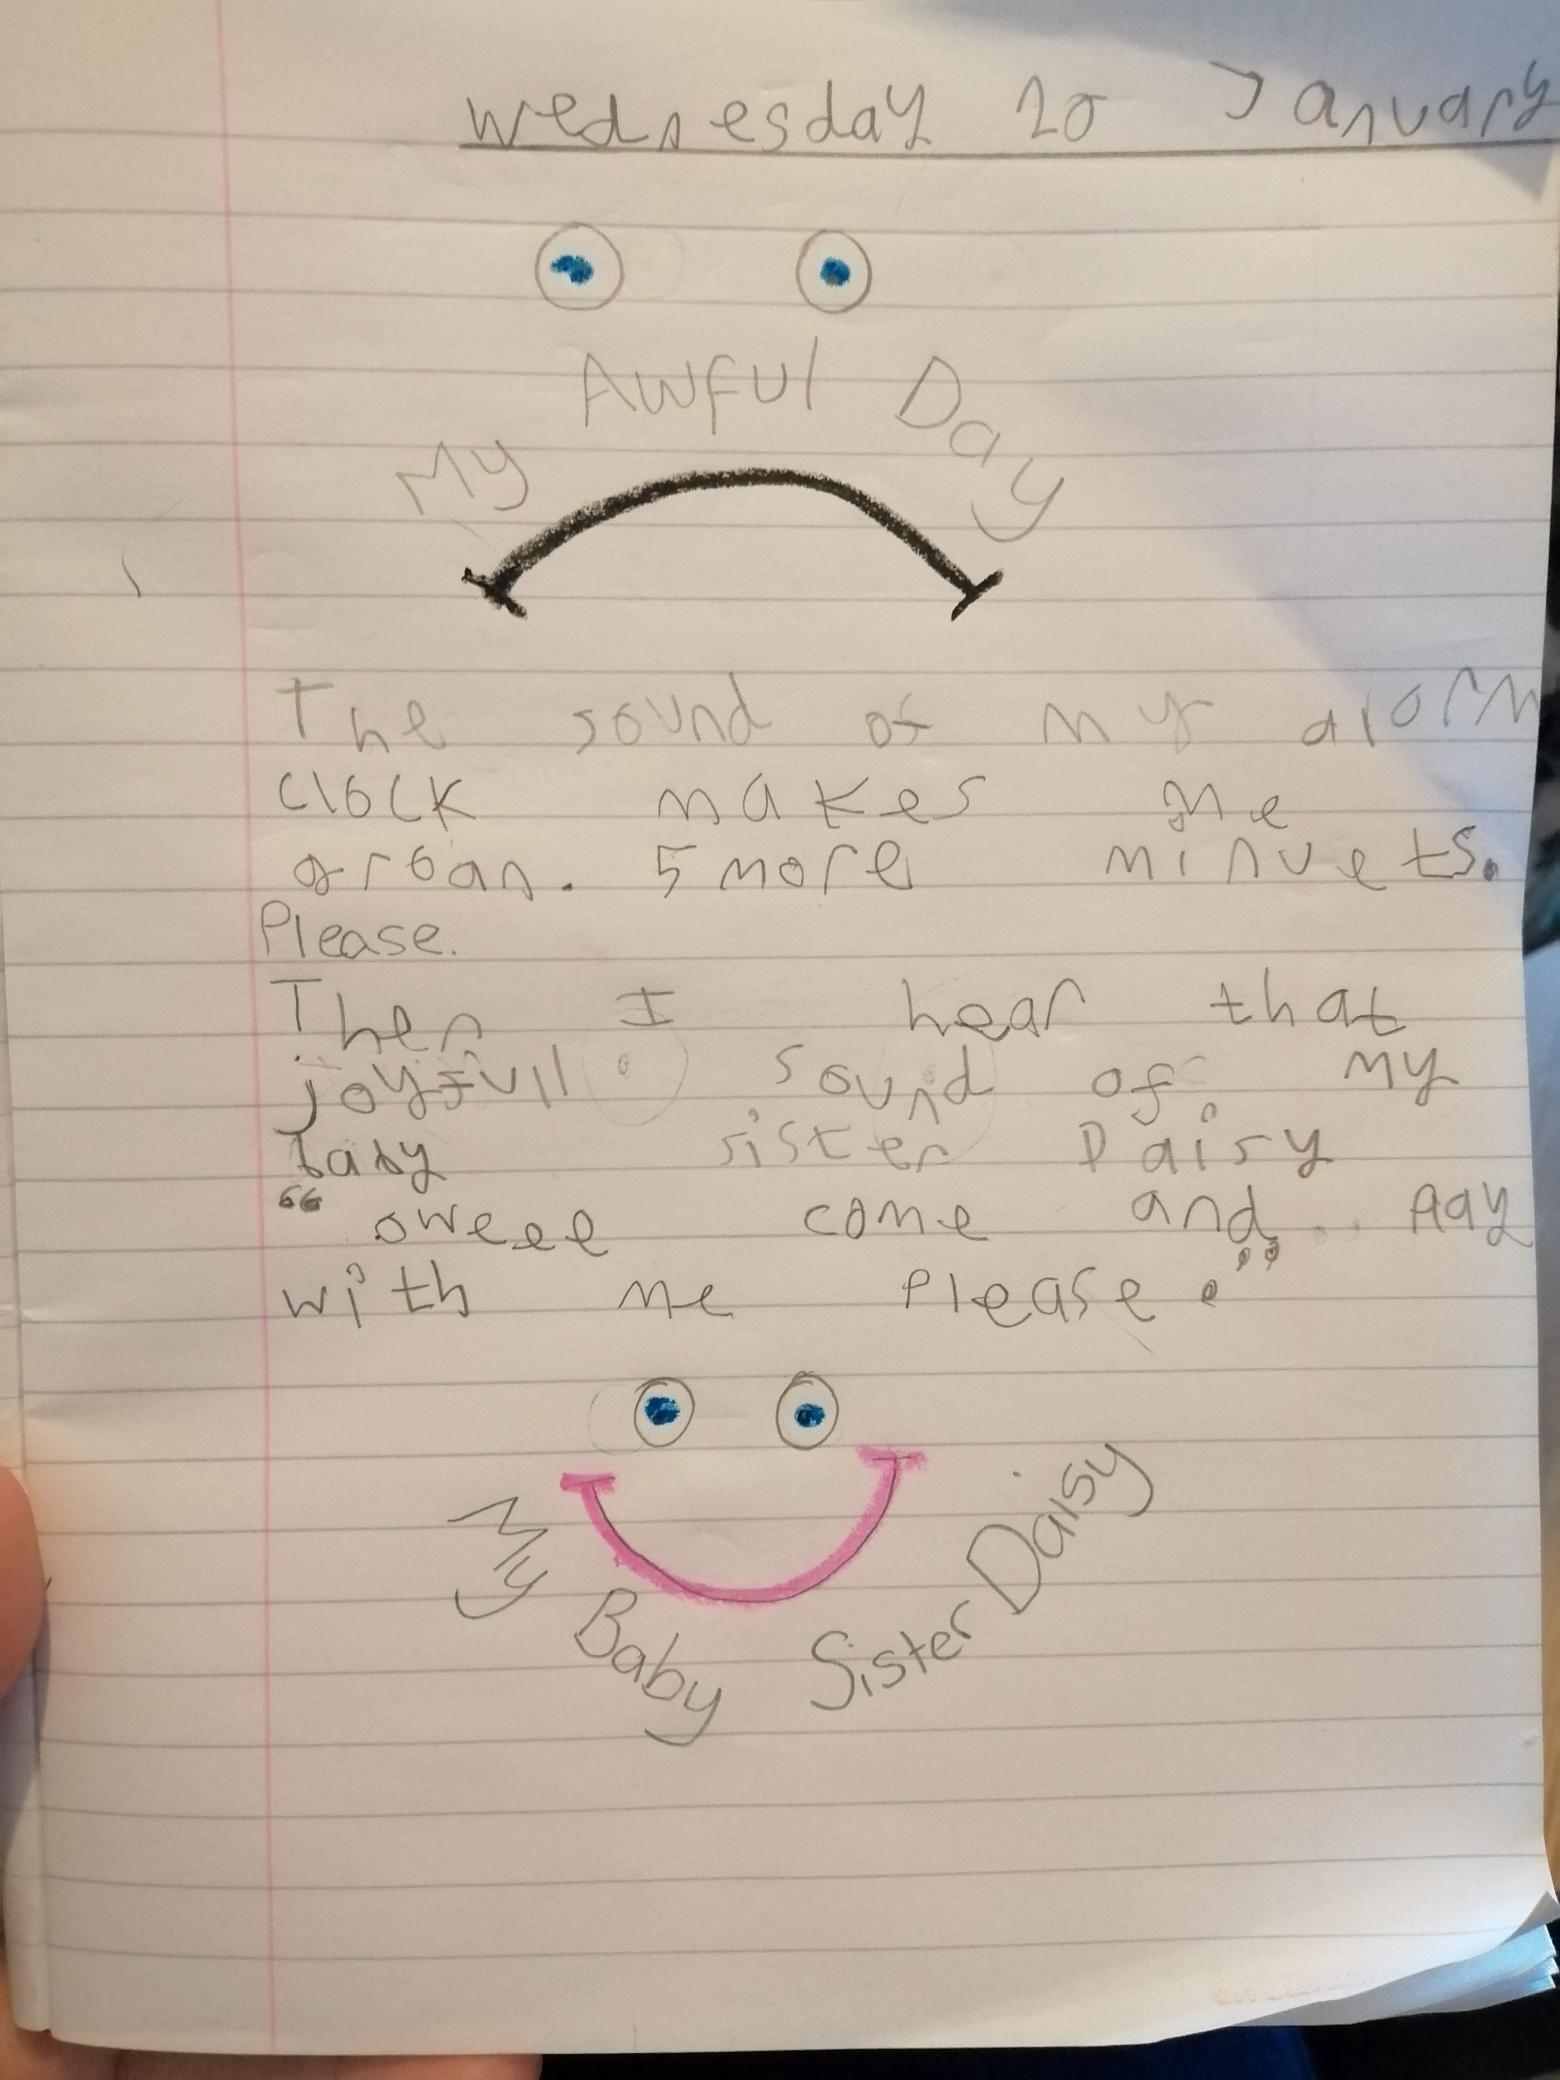 Wednesday 20 January
My Awful Day
The sound of my alorm
clock makes me
groan. 5 more minuets.
Please.
Then I hear that
joyfull sound of my
baby sister Daisy
"oweee come and Play
with me Please."
My Baby Sister Daisy